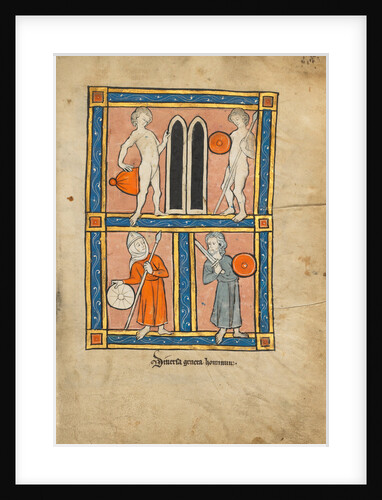 Diversa genera hominum:·